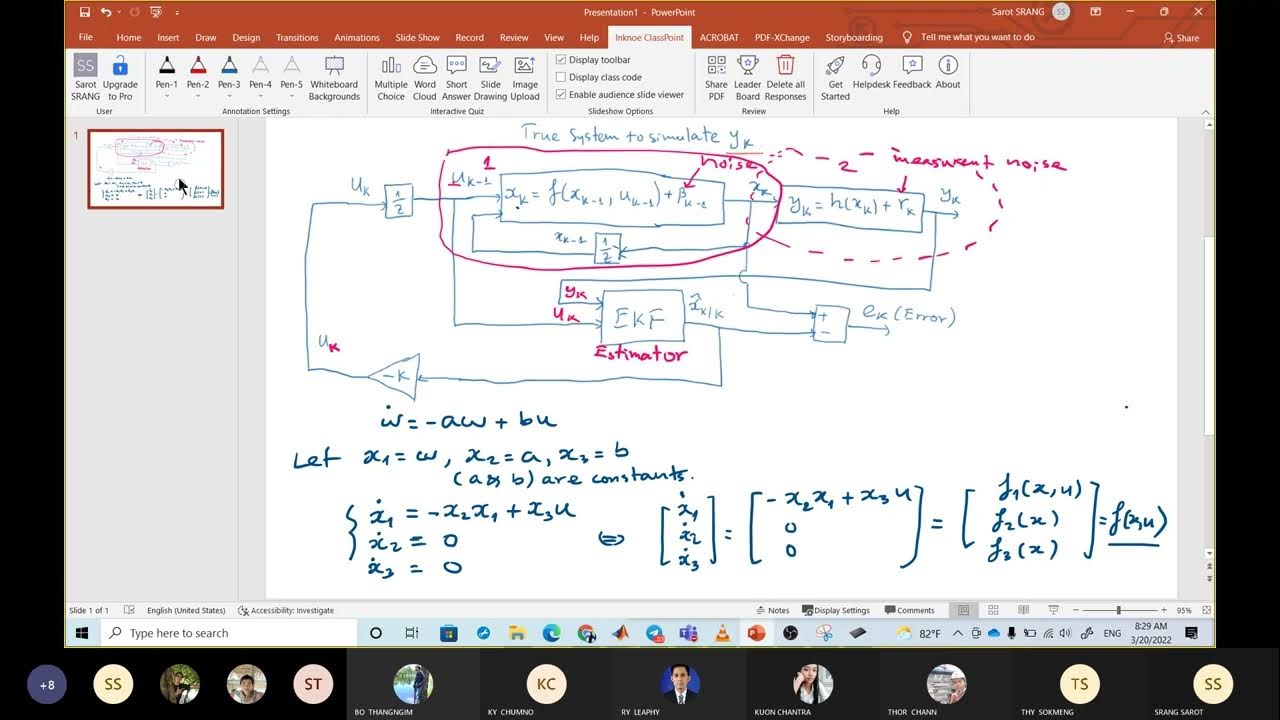 Presentation1 - PowerPoint
Sarot SRANG
SS
File Home Insert Draw Design Transitions Animations Slide Show Record Review View Help Inknoe ClassPoint ACROBAT PDF-XChange Storyboarding Tell me what you want to do Share
SS
Sarot SRANG
Upgrade to Pro
User
Pen-1 Pen-2 Pen-3 Pen-4 Pen-5
Whiteboard Backgrounds
Annotation Settings
Multiple Choice
Word Cloud
Short Answer
Slide Drawing
Image Upload
Interactive Quiz
Display toolbar
Display class code
Enable audience slide viewer
Slideshow Options
Share PDF
Leader Board
Delete all Responses
Review
Get Started
Helpdesk
Feedback
About
Help
1
True System to simulate yK
1
noise
2
measurement noise
UK
1/z
uK-1
xK = f(xK-1, uK-1) + βK-1
xK
yK = h(xK) + rK
yK
xK-1
1/z
yK
uK
EKF
x̂K/K
Estimator
+
-
eK (Error)
uK
-K
ẇ = -aw + bu
Let x1 = w, x2 = a, x3 = b
(a & b) are constants.
{ ẋ1 = -x2x1 + x3u
ẋ2 = 0
ẋ3 = 0
⇔ [ẋ1 ẋ2 ẋ3] = [-x2x1 + x3u 0 0] = [f1(x,u) f2(x) f3(x)] = f(x,u)
Slide 1 of 1 English (United States) Accessibility: Investigate Notes Display Settings Comments 95%
Type here to search
82°F
ENG
8:29 AM
3/20/2022
+8
SS
ST
BO THANGNGIM
KC
KY CHUMNO
RY LEAPHY
KUON CHANTRA
THOR CHANN
TS
THY SOKMENG
SS
SRANG SAROT